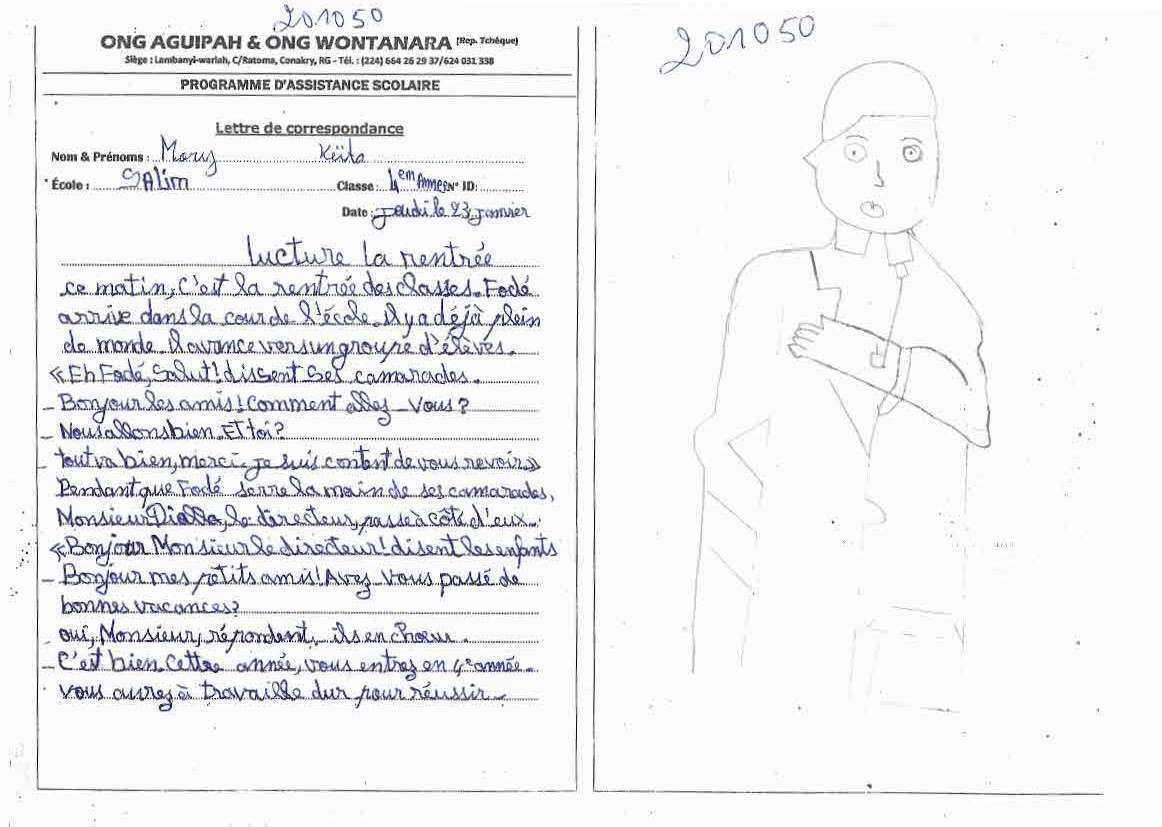 201050
ONG AGUIPAH & ONG WONTANARA (Rep. Tchèque)
Siège : Lambanyi-wariah, C/Ratoma, Conakry, RG - Tél. : (224) 664 26 29 37/624 031 338
PROGRAMME D'ASSISTANCE SCOLAIRE
Lettre de correspondance
Nom & Prénoms : Mory Keïta
École : SAlim Classe : 4em Annee N° ID:
Date : Jeudi le 23 Janvier
lucture la rentrée
ce matin, C'est la rentrée des classes. Fodé
arrive dans la cour de l'école. il y a déjà plein
de monde. Il avance vers un groupe d'élèves.
«Eh Fodé, Salut! dissent Ses camarades.
_ Bonjour les amis! Comment allez - Vous?
_ Nous allons bien. Et toi?
_ tout va bien, merci. je suis content de vous revoir»
Pendant que Fodé serre la main de ses camarades,
Monsieur Diallo, le directeur, passe à côté d'eux.
«Bonjour Monsieur le directeur! disent les enfants
_ Bonjour mes petits amis! Avez Vous passé de
bonnes vacances?
_ oui, Monsieur, répondent, ils en chœur.
_ C'est bien. Cettre année, vous entrez en 4e année.
vous aurez à travaille dur pour réussir.
201050